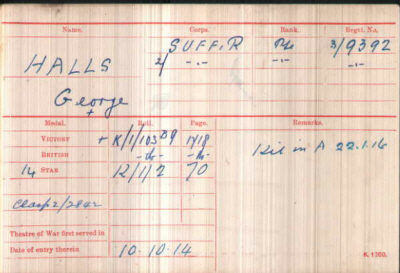 Name. Corps. Rank. Regtl. No.
HALLS SUFF. R Pte 3/9392
2/ -"- -"- -"-
George
+
Medal. Roll. Page. Remarks.
VICTORY + K/1/103 B9 1418 Kil in A 22.1.16
BRITISH -do- -do-
14 STAR K/1/2 70
Clasp
Theatre of War first served in
Date of entry therein 10.10.14 K. 1380.